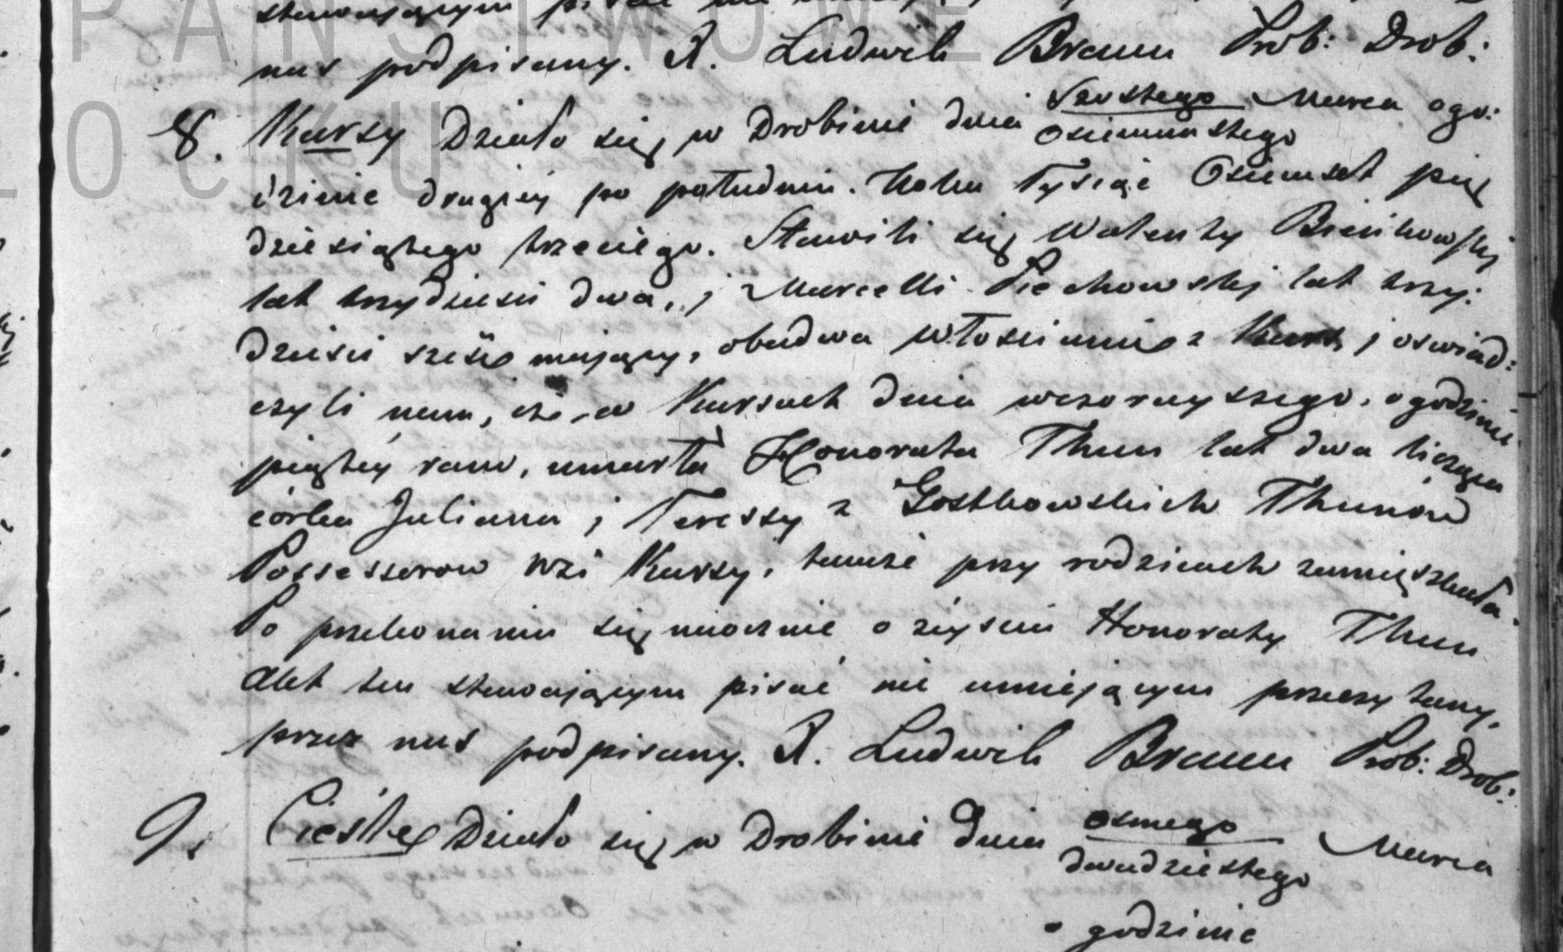 PAŃSTWOWE
nas podpisany. X. Ludwik Braun Prob: Drob:
PŁOCKU
8. Kursy Działo się w Drobinie dnia szostego / osiemnastego Marca ogo:
dzinie drugiej po południu. Roku Tysiąc Osiemset pię
dziesiątego trzeciego. Stawili się Walenty Bieńkowski
lat trzydzieści dwa, j Marcelli Piechowskj lat trzy:
dzieści sześć mający, obudwa włościanie z Kurs, j oswiad:
czyli nam, iż w Kursach dnia wczorayszego, o godzinie
piątéy rano, umarła Honorata Thun lat dwa licząca
córka Juliana j Teressy z Gostkowskich Thunów
Possessorow wsi Kursy, tamże przy rodzicach zamięszkała.
Po przekonaniu się naocznie o zeyściu Honoraty Thun
Akt ten stawającym pisać nie umiejącym przeczytany,
przez nas podpisany. X. Ludwik Braun Prob: Drob:
9. Cieśle Działo się w Drobinie dnia osmego / dwudziestego Marca
o godzinie